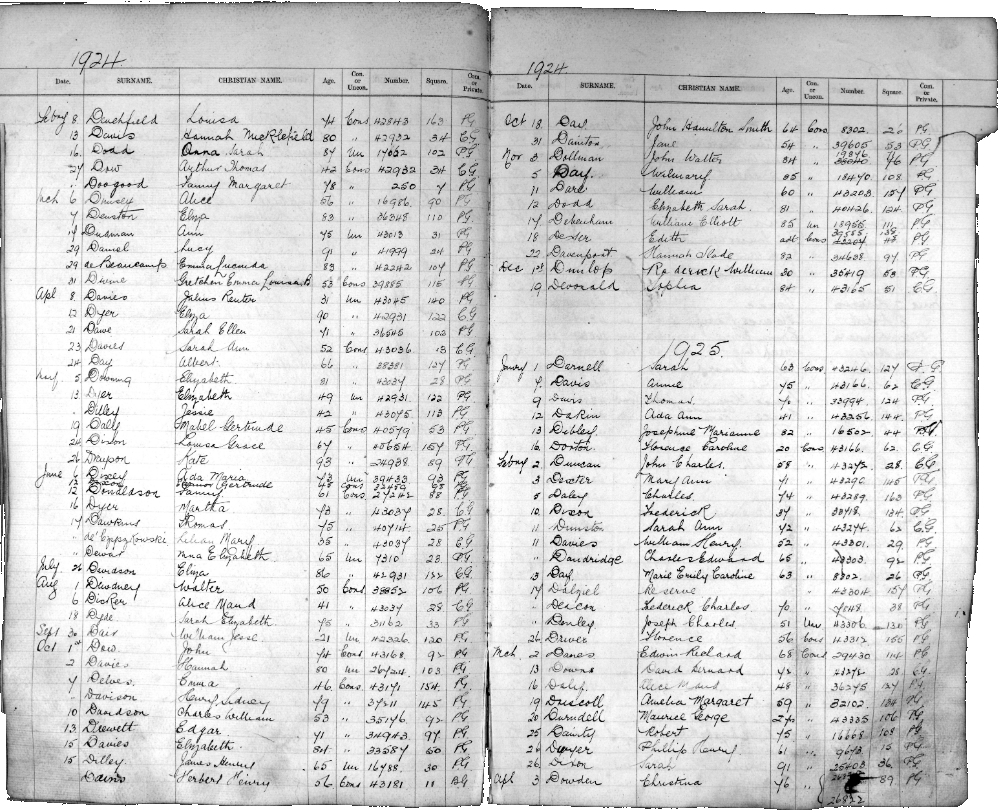 1924.
Date. SURNAME. CHRISTIAN NAME. Age. Con. or Uncon. Number. Square. Com. or Private.
8 Louisa 74 Cons 42843 163 PG
13 Davis Hannah Micklefield 80 " 42932 34 CG
16 Dodd Anna Sarah 87 Un 17052 102 PG
27 Dow Arthur Thomas 42 Cons 42932 34 CG
" Doogood Fanny Margaret 78 " 250 7 PG
Mch 6 Alice 56 " 16986 90 PG
7 Denston Eliza 83 " 36348 110 PG
17 Dudman Ann 75 Un 43013 31 PG
29 Daniel Lucy 91 " 24 PG
29 de Beaucamp Emma Lucinda 83 " 42242 107 PG
31 Gretchen Emma 53 Cons 39885 115 PG
Apl 8 Davies Julius Reuter 31 Un 43045 140 PG
12 Dyer Eliza 90 " 42931 122 CG
21 Dawe Sarah Ellen 71 " 36545 102 PG
23 Davies Sarah Ann 52 Cons 43036 13 CG
24 Day Albert 66 " 38381 127 PG
May 5 Downing Elizabeth 81 " 43037 28 CG
13 Dier Elizabeth 49 Un 42931 122 PG
" Dilley Jessie 42 " 43075 113 PG
19 Dally Mabel Gertrude 45 Cons 40579 53 PG
24 Dixon Louisa Grace 67 " 40654 157 PG
26 Kate 93 " 24938 59 PG
June 6 Dixey Ada Maria 73 Un 39433 93 PG
12 Gertrude 48 Cons
12 Donaldson Fanny 61 Cons 27242 88 PG
16 Dyer Martha 73 " 43037 28 CG
17 Dawkins Thomas 75 " 40714 25 PG
" Lilian Mary 35 " 43037 28 CG
" Dewar Anna Elizabeth 65 Un 7310 23 PG
July 26 Davidson Eliza 86 " 42931 122 CG
Aug 1 Dewdney Walter 50 Cons 38352 106 PG
6 Alice Maud 41 " 43037 28 CG
18 Dyde Sarah Elizabeth 75 " 31162 33 PG
Sept 30 William Jesse 21 Un 42326 120 PG
Oct 1st Dow John 74 Cons 43168 92 PG
2 Davies Hannah 80 Un 103 PG
7 Delves Emma 46 Cons 43171 154 PG
" Davison Henry Sidney 79 " 37211 145 PG
10 Davidson Charles William 53 " 35176 92 PG
13 Drewett Edgar 71 " 34943 97 PG
15 Davies Elizabeth 84 " 33587 50 PG
15 Dilley James Henry 65 Un 16788 30 PG
Herbert Henry 56 Cons 43181 11 PG
1924.
Date. SURNAME. CHRISTIAN NAME. Age. Con. or Uncon. Number. Square. Com. or Private.
Oct 18 John Hamilton Smith 64 Cons 8302 26 PG
31 Dainton Jane 54 " 39605 53 PG
Nov 3 Dollman John Walter 34 " 96 PG
5 Day 35 " 18470 108 PG
11 Dare William 60 " 43203 157 PG
12 Dodd Elizabeth Sarah 81 " 40426 124 PG
17 Debenham William Elliott 85 Un 18955 111 PG
18 Edith Cons PG
22 Davenport Hannah Slade 82 " 34638 97 PG
Dec 1st Dunlop Roderick William 30 " 36419 53 PG
19 Sophia 84 " 43165 51 CG
1925.
1 Darnell Sarah 63 Cons 43246 127
7 Davis Annie 75 " 43166 62 CG
9 Davis Thomas 70 " 33994 124 PG
12 Dakin Ada Ann 41 " 43256 144 PG
13 Dibley Josephine Marianne 32 " 16502 44 PG
16 Florence Caroline 20 Cons 43166 62 CG
2 Duncan John Charles 58 " 43272 28 CG
3 Dexter Mary Ann 71 " 43290 145 PG
5 Daley Charles 74 " 43289 163 PG
10 Dixon Frederick 37 " 134 PG
11 Dunston Sarah Ann 72 " 43274 62 CG
11 Davies William Henry 52 " 43301 29 PG
" Dandridge Charles Edward 65 " 43303 92 PG
13 Day Marie Emily Caroline 63 " 8302 26 PG
17 Dalziel Reserve " 43304 157 PG
" Deacon Frederick Charles 70 " 7048 38 PG
" Donley Joseph Charles 51 Un 43306 130 PG
26 Driver Florence 56 Cons 43312 155 PG
Mch 2 Danes Edwin 68 Cons 29430 114 PG
13 Downs David Bernard 72 " 43272 28 CG
16 Alice Maud 48 " 36275 127 PG
19 Driscoll Amelia Margaret 59 " 32102 134 PG
20 Darndell Maurice George " 43335 106 PG
25 Dainty Robert 75 " 16668 108 PG
26 Dwyer Phillip Henry 61 " 9673 15 PG
26 Dixon Sarah 91 " 25403 36 PG
Apl 3 Dowden Christina 76 " 89 PG
26822